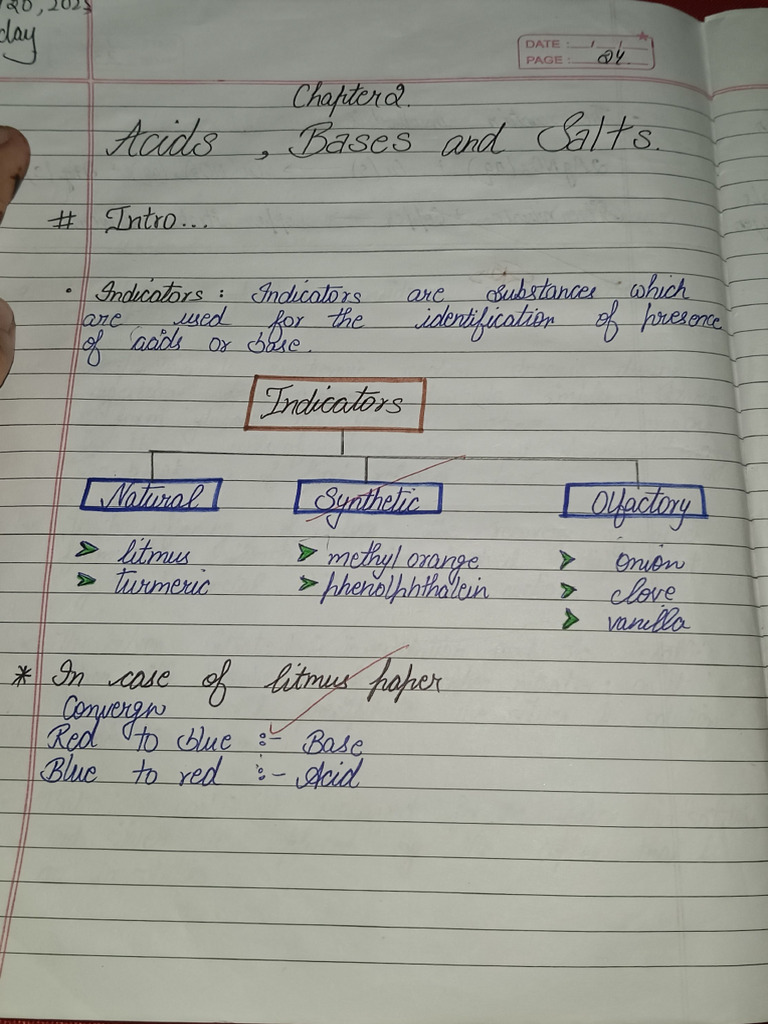 20, 2025
day
DATE : / /
PAGE : 24.
Chapter 2.
Acids , Bases and Salts.
# Intro...
• Indicators : Indicators are substances which
are used for the identification of presence
of acids or base.
Indicators
Natural Synthetic Olfactory
➤ litmus ➤ methyl orange ➤ onion
➤ turmeric ➤ phenolphthalein ➤ clove
➤ vanilla
* In case of litmus paper
Red to blue :- Base
Blue to red :- Acid